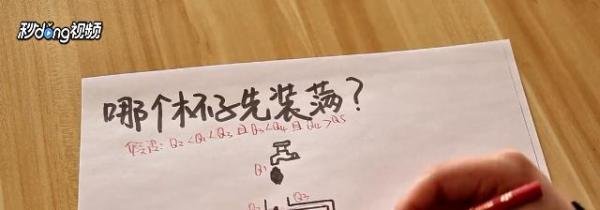 秒dong视频
哪个杯子先装满?
假设: Q2<Q1<Q3 且 Q3<Q4 且 Q4>Q5
Q1
Q3